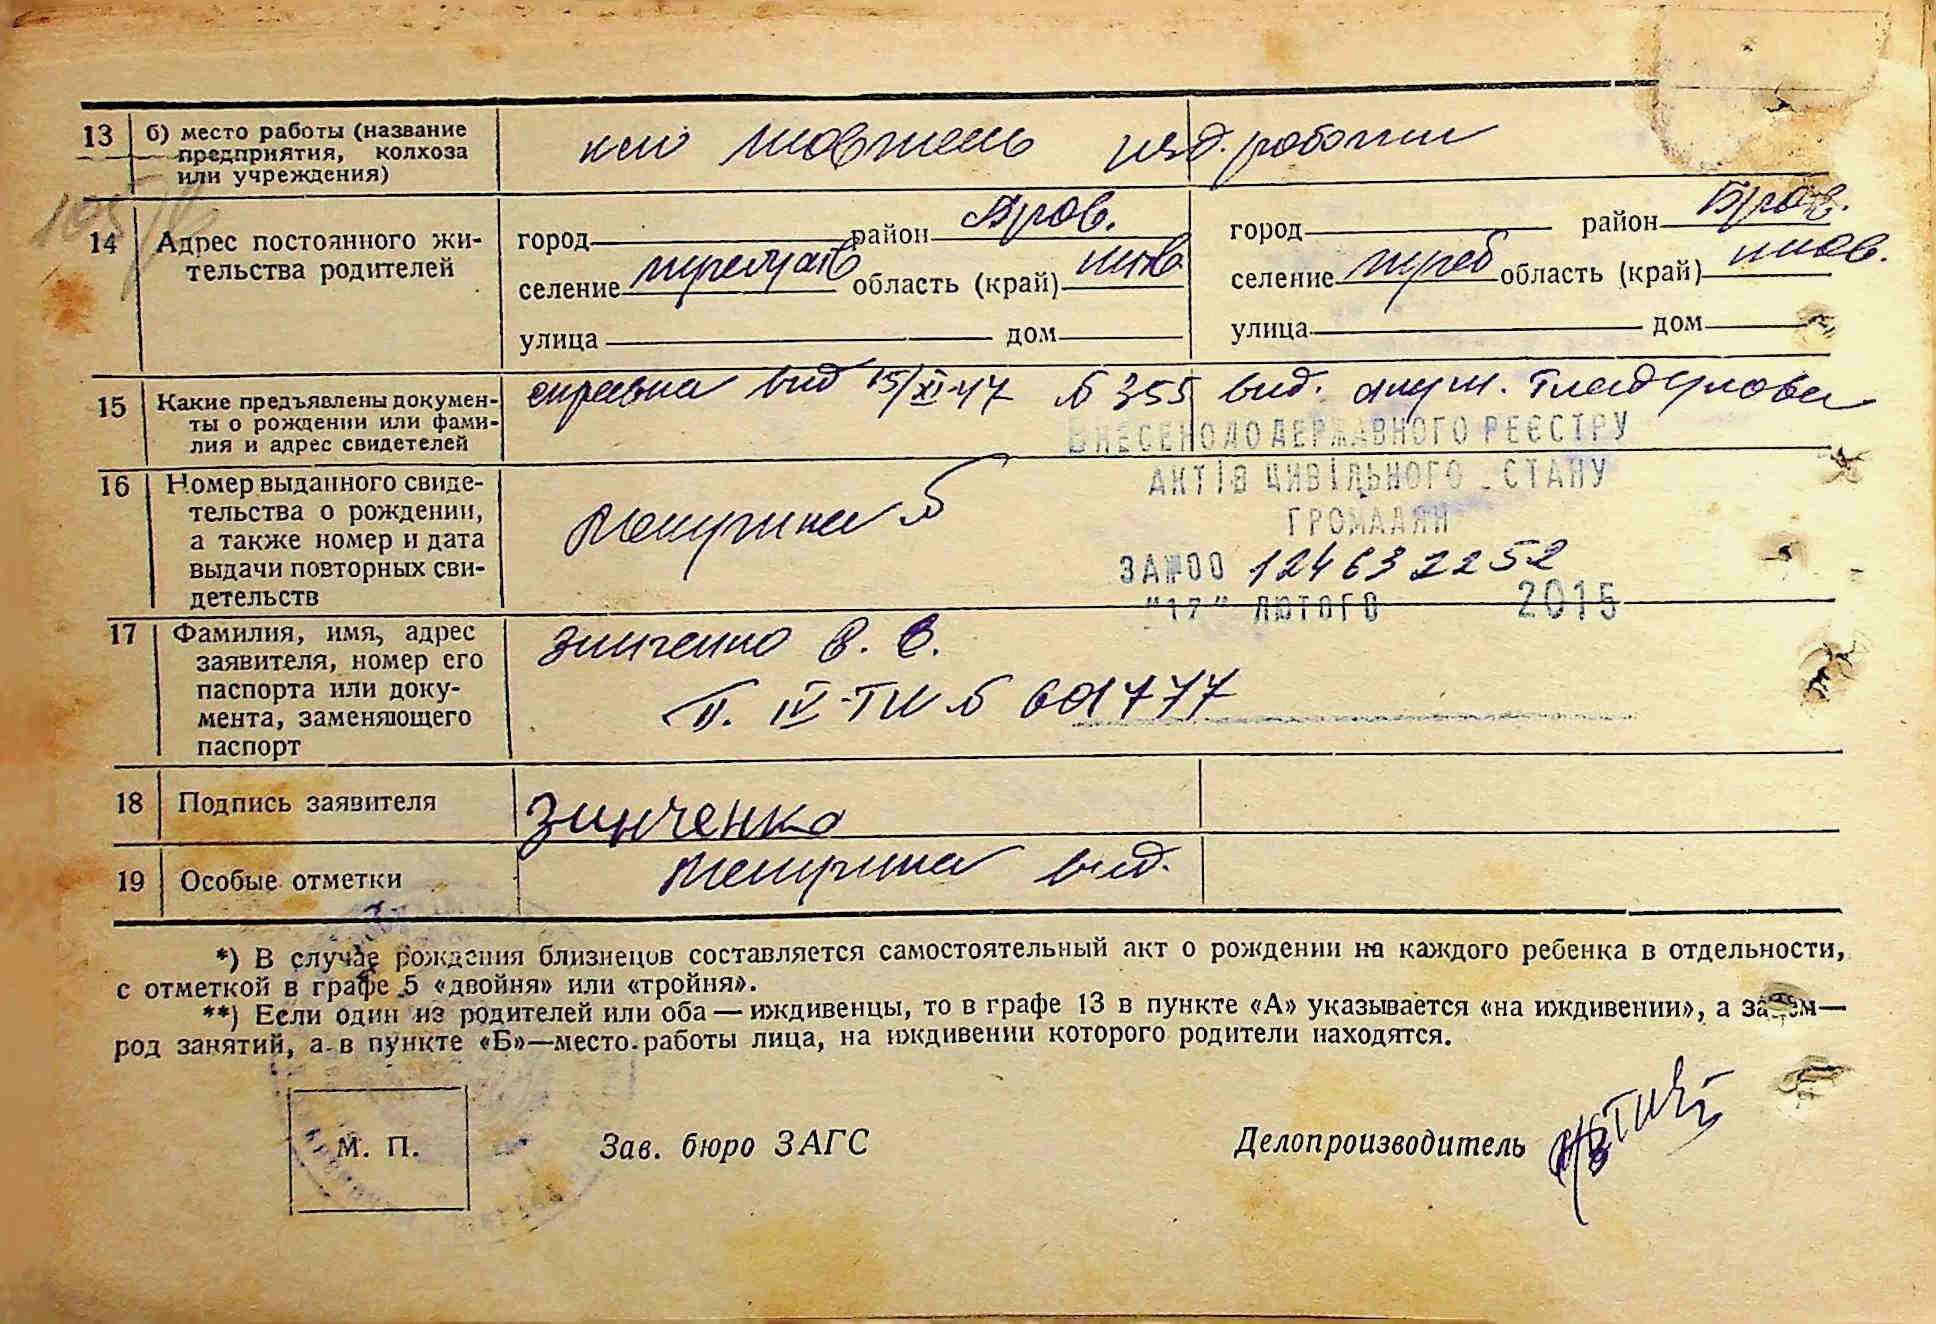 13 б) место работы (название
предприятия, колхоза
или учреждения)
14 Адрес постоянного жи-
тельства родителей
город район Бров. город район Бров.
селение область (край) киев селение требух область (край) киев.
улица дом улица дом
15 Какие предъявлены докумен-
ты о рождении или фами-
лия и адрес свидетелей
справка вид 15/XI-47 № 355 вид. акуш.
ВНЕСЕНО ДО ДЕРЖАВНОГО РЕЄСТРУ
АКТІВ ЦИВІЛЬНОГО СТАНУ
ГРОМАДЯН
ЗА №00 124632252
"17" ЛЮТОГО 2015
16 Номер выданного свиде-
тельства о рождении,
а также номер и дата
выдачи повторных сви-
детельств
17 Фамилия, имя, адрес
заявителя, номер его
паспорта или доку-
мента, заменяющего
паспорт
Зинченко В. С.
П. IV-ТИ № 601777
18 Подпись заявителя
Зинченко
19 Особые отметки
вид.
*) В случае рождения близнецов составляется самостоятельный акт о рождении на каждого ребенка в отдельности,
с отметкой в графе 5 «двойня» или «тройня».
**) Если один из родителей или оба — иждивенцы, то в графе 13 в пункте «А» указывается «на иждивении», а затем—
род занятий, а в пункте «Б»—место работы лица, на иждивении которого родители находятся.
М. П. Зав. бюро ЗАГС Делопроизводитель